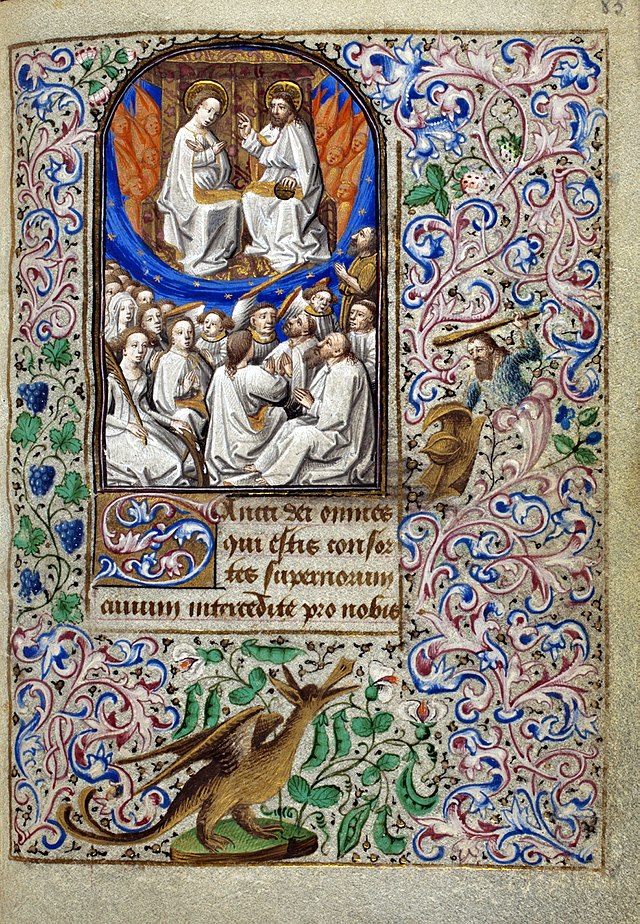 83
Sancti dei omnes
qui estis consor
tes supernorum
civium intercedite pro nobis